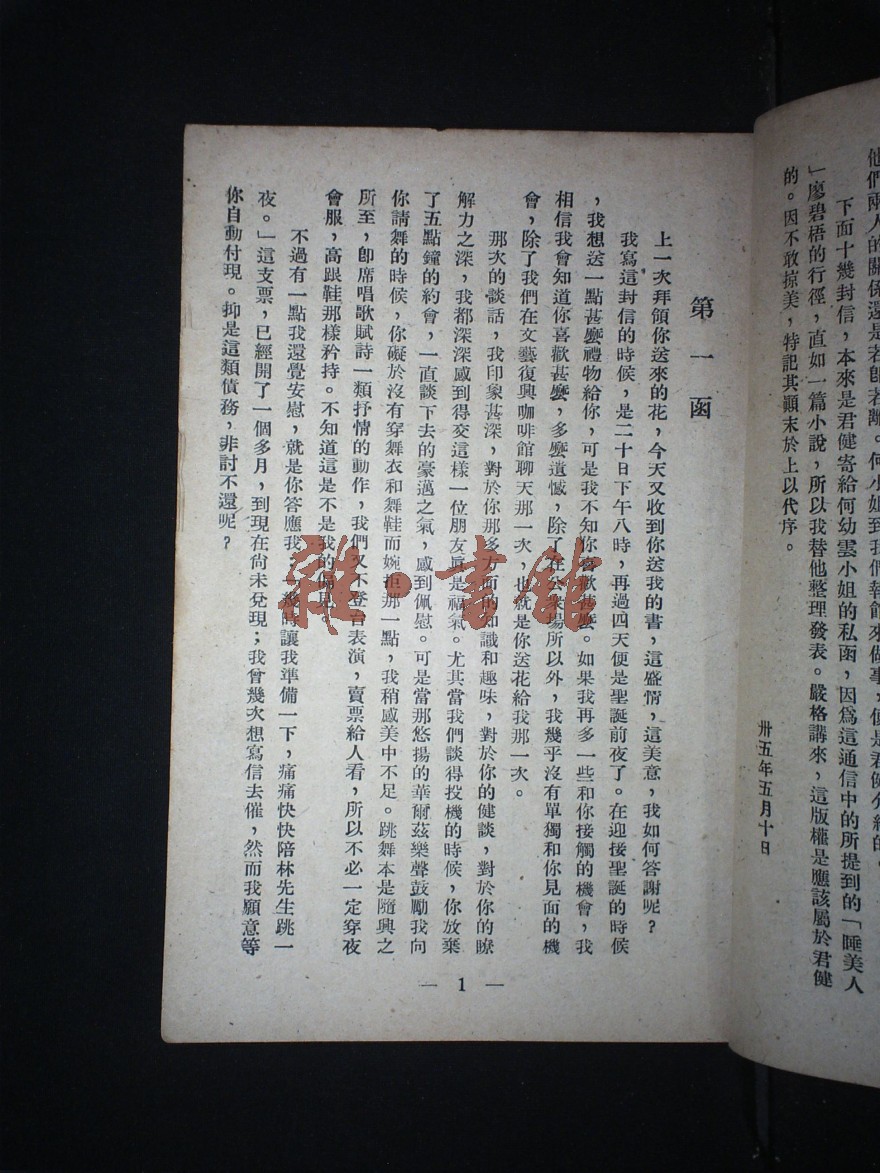 他們兩人的關係還是若卽若離。何小姐到我們報館來做事，便是君健介紹的。
下面十幾封信，本來是君健寄給何幼雲小姐的私函，因爲這通信中的所提到的「睡美人
」廖碧梧的行徑，直如一篇小說，所以我替他整理發表。嚴格講來，這版權是應該屬於君健
的。因不敢掠美，特記其顚末於上以代序。
卅五年五月十日
第一函
上一次拜領你送來的花，今天又收到你送我的書，這盛情，這美意，我如何答謝呢？
我寫這封信的時候，是二十日下午八時，再過四天便是聖誕前夜了。在迎接聖誕的時候
，我想送一點甚麽禮物給你，可是我不知你喜歡甚麽。如果我再多一些和你接觸的機會，我
相信我會知道你喜歡甚麽，多麽遺憾，除了在公衆場所以外，我幾乎沒有單獨和你見面的機
會，除了我們在文藝復興咖啡館聊天那一次，也就是你送花給我那一次。
那次的談話，我印象甚深，對於你那多方面的知識和趣味，對於你的健談，對於你的瞭
解力之深，我都深深感到得交這樣一位朋友眞是福氣。尤其當我們談得投機的時候，你放棄
了五點鐘的約會，一直談下去的豪邁之氣，感到佩慰。可是當那悠揚的華爾茲樂聲鼓勵我向
你請舞的時候，你礙於沒有穿舞衣和舞鞋而婉拒那一點，我稍感美中不足。跳舞本是隨興之
所至，卽席唱歌賦詩一類抒情的動作，我們又不登台表演，賣票給人看，所以不必一定穿夜
會服，高跟鞋那樣矜持。不知道這是不是我的偏見。
不過有一點我還覺安慰，就是你答應我：「幾時讓我準備一下，痛痛快快陪林先生跳一
夜。」這支票，已經開了一個多月，到現在尙未兌現；我曾幾次想寫信去催，然而我願意等
你自動付現。抑是這類債務，非討不還呢？
— 1 —
雜·書館